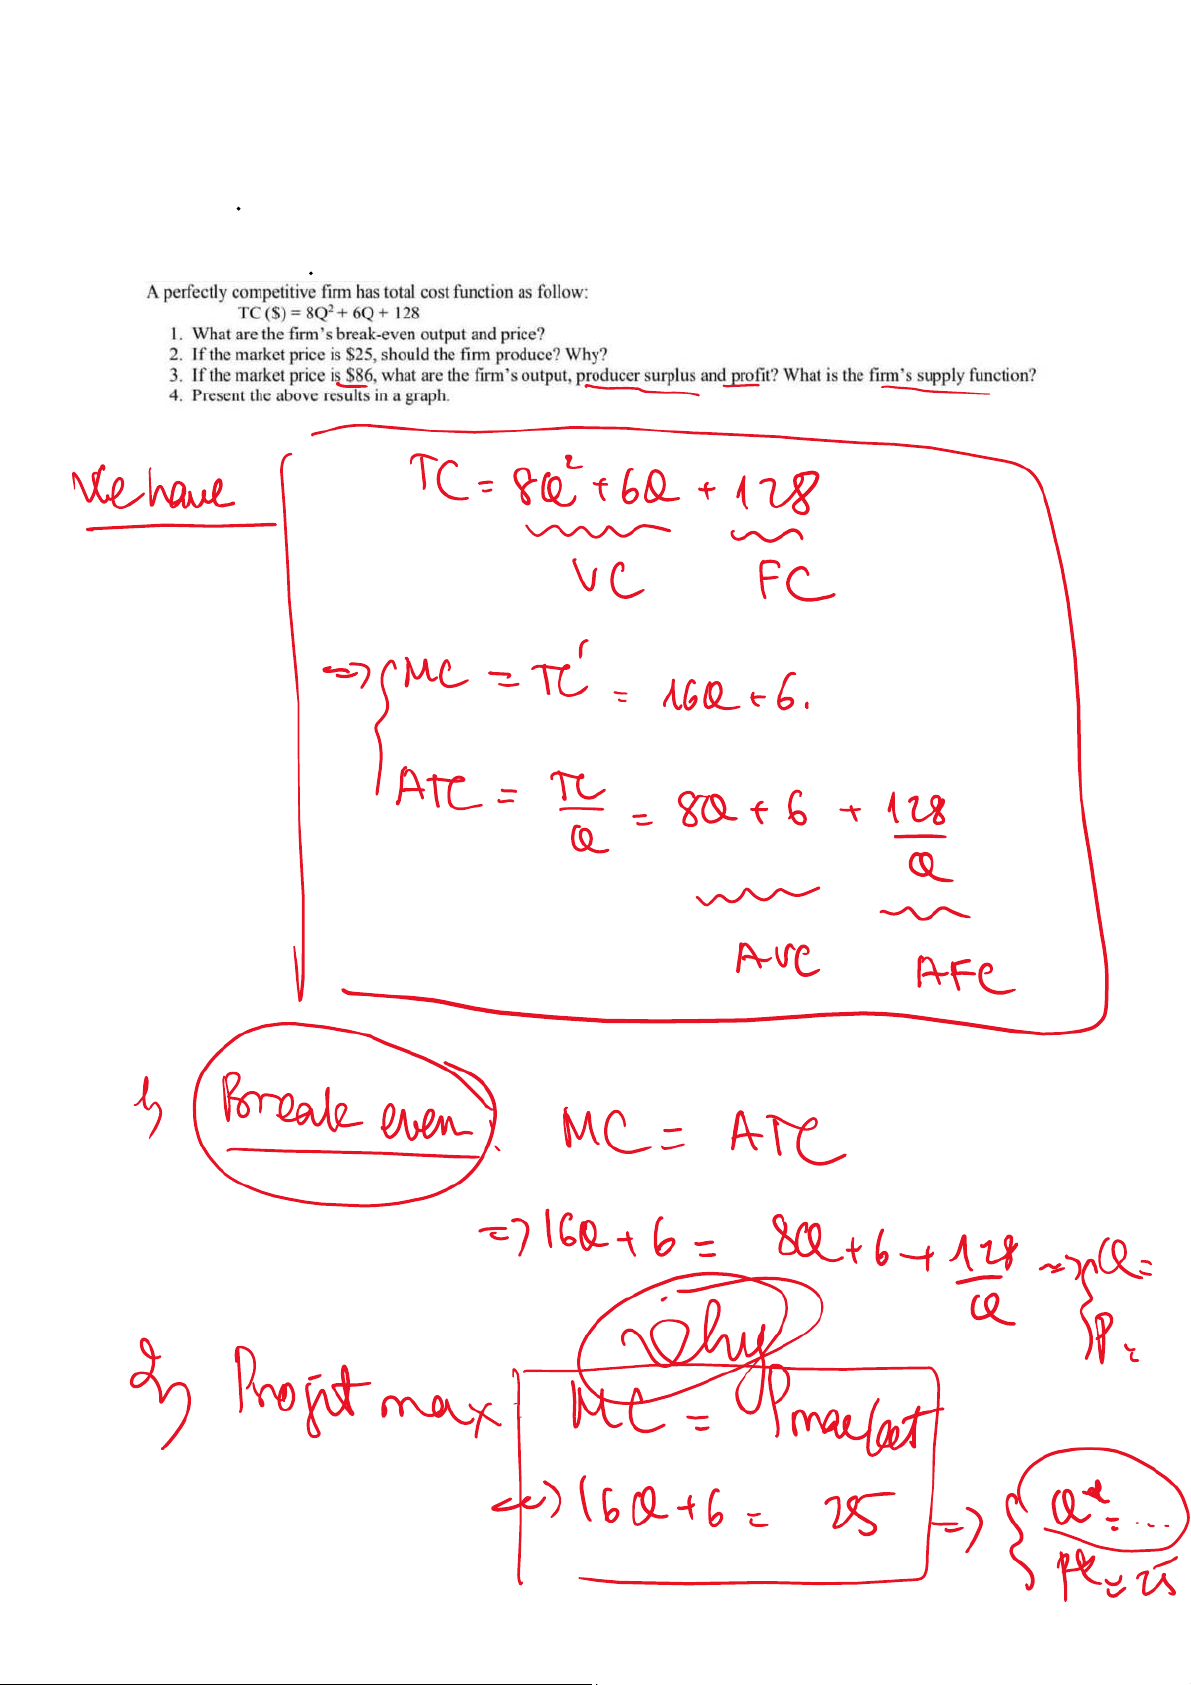 A perfectly competitive firm has total cost function as follow:
TC ($) = 8Q² + 6Q + 128
1. What are the firm's break-even output and price?
2. If the market price is $25, should the firm produce? Why?
3. If the market price is $86, what are the firm's output, producer surplus and profit? What is the firm's supply function?
4. Present the above results in a graph.
We have
TC = 8Q² + 6Q + 128
VC FC
=> { MC = TC' = 16Q + 6.
ATC = TC/Q = 8Q + 6 + 128/Q
AVC AFC
1) Break even MC = ATC
=> 16Q + 6 = 8Q + 6 + 128/Q => { Q =
P =
Why
2) Profit max MC = Pmarket
<=> 16Q + 6 = 25 => { Q* = ...
P* = 25